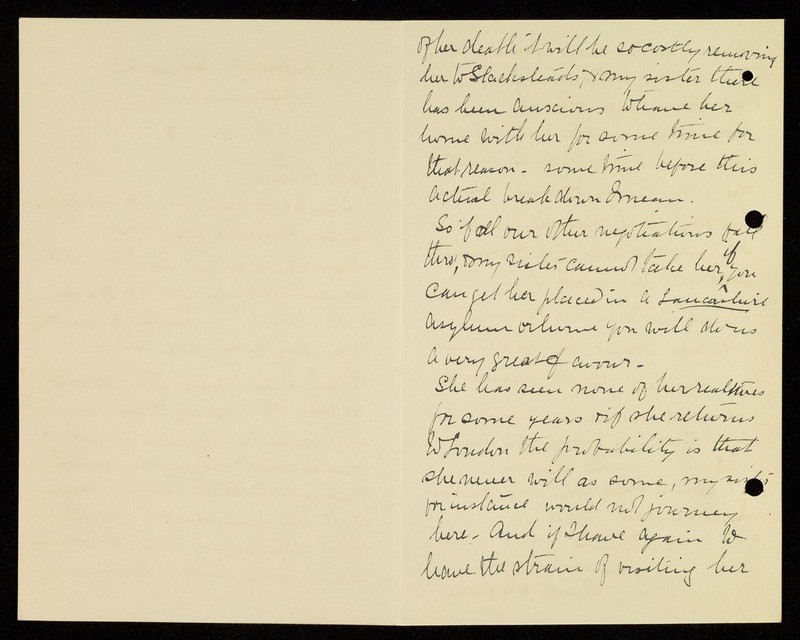 of her death it will be so costly removing
her to Slacksteads, & my sister there
has been anxious to have her
home with her for some time for
that reason - some time before this
actual breakdown I mean.
So if all our other negotiations fall
thro', & my sister cannot take her, if you
can get her placed in a Lancashire
asylum or home you will do us
a very great favour -
She has seen none of her realtives
for some years & if she returns
to London the probability is that
she never will as some, my sister
for instance would not journey
here. And if I have again to
have the strain of visiting her